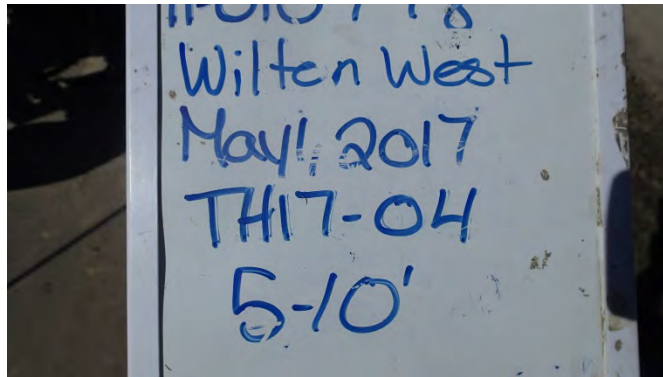 Wilten West
May 1, 2017
TH17-04
5-10'